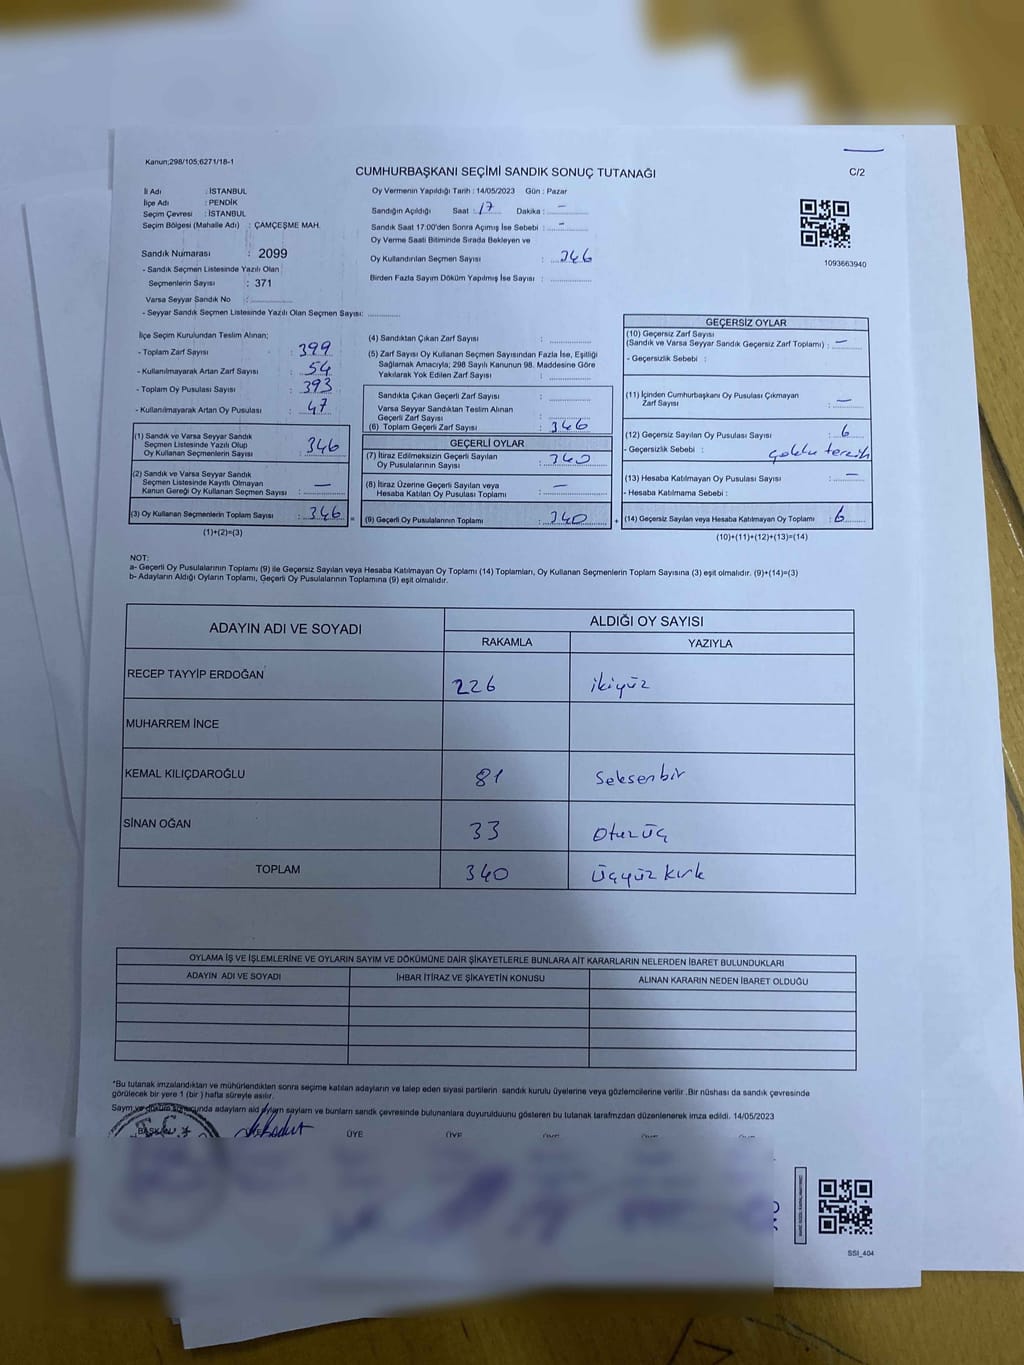 Kanun;298/105,6271/18-1
CUMHURBAŞKANI SEÇİMİ SANDIK SONUÇ TUTANAĞI
C/2
İli Adı : İSTANBUL
İlçe Adı : PENDİK
Seçim Çevresi : İSTANBUL
Seçim Bölgesi (Mahalle Adı) : ÇAMÇEŞME MAH.
Sandık Numarası : 2099
- Sandık Seçmen Listesinde Yazılı Olan
Seçmenlerin Sayısı : 371
Varsa Seyyar Sandık No :
- Seyyar Sandık Seçmen Listesinde Yazılı Olan Seçmen Sayısı:
Oy Vermenin Yapıldığı Tarih : 14/05/2023 Gün : Pazar
Sandığın Açıldığı Saat : 17 Dakika : -
Sandık Saat 17:00'den Sonra Açımış İse Sebebi : -
Oy Verme Saati Bitiminde Sırada Bekleyen ve
Oy Kullandırılan Seçmen Sayısı : 346
Birden Fazla Sayım Döküm Yapılmış İse Sayısı :
1093663940
İlçe Seçim Kurulundan Teslim Alınan;
- Toplam Zarf Sayısı : 399
- Kullanılmayarak Artan Zarf Sayısı : 54
- Toplam Oy Pusulası Sayısı : 393
- Kullanılmayarak Artan Oy Pusulası : 47
(1) Sandık ve Varsa Seyyar Sandık
Seçmen Listesinde Yazılı Olup
Oy Kullanan Seçmenlerin Sayısı : 346
(2) Sandık ve Varsa Seyyar Sandık
Seçmen Listesinde Kayıtlı Olmayan
Kanun Gereği Oy Kullanan Seçmen Sayısı : —
(3) Oy Kullanan Seçmenlerin Toplam Sayısı : 346 =
(1)+(2)=(3)
(4) Sandıktan Çıkan Zarf Sayısı :
(5) Zarf Sayısı Oy Kullanan Seçmen Sayısından Fazla İse, Eşitliği
Sağlamak Amacıyla; 298 Sayılı Kanunun 98. Maddesine Göre
Yakılarak Yok Edilen Zarf Sayısı :
Sandıkta Çıkan Geçerli Zarf Sayısı :
Varsa Seyyar Sandıktan Teslim Alınan
Geçerli Zarf Sayısı :
(6) Toplam Geçerli Zarf Sayısı : 346
GEÇERLİ OYLAR
(7) İtiraz Edilmeksizin Geçerli Sayılan
Oy Pusulalarının Sayısı : 340
(8) İtiraz Üzerine Geçerli Sayılan veya
Hesaba Katılan Oy Pusulası Toplamı : —
(9) Geçerli Oy Pusulalarının Toplamı : 340 +
GEÇERSİZ OYLAR
(10) Geçersiz Zarf Sayısı
(Sandık ve Varsa Seyyar Sandık Geçersiz Zarf Toplamı) : —
- Geçersizlik Sebebi :
(11) İçinden Cumhurbaşkanı Oy Pusulası Çıkmayan
Zarf Sayısı : —
(12) Geçersiz Sayılan Oy Pusulası Sayısı : 6
- Geçersizlik Sebebi : çoklu tercih
(13) Hesaba Katılmayan Oy Pusulası Sayısı : —
- Hesaba Katılmama Sebebi :
(14) Geçersiz Sayılan veya Hesaba Katılmayan Oy Toplamı : 6
(10)+(11)+(12)+(13)=(14)
NOT:
a- Geçerli Oy Pusulalarının Toplamı (9) ile Geçersiz Sayılan veya Hesaba Katılmayan Oy Toplamı (14) Toplamları, Oy Kullanan Seçmenlerin Toplam Sayısına (3) eşit olmalıdır. (9)+(14)=(3)
b- Adayların Aldığı Oyların Toplamı, Geçerli Oy Pusulalarının Toplamına (9) eşit olmalıdır.
ADAYIN ADI VE SOYADI
ALDIĞI OY SAYISI
RAKAMLA YAZIYLA
RECEP TAYYİP ERDOĞAN 226 ikiyüz
MUHARREM İNCE
KEMAL KILIÇDAROĞLU 81 Seksenbir
SİNAN OĞAN 33 Otuzüç
TOPLAM 340 Üçyüz kırk
OYLAMA İŞ VE İŞLEMLERİNE VE OYLARIN SAYIM VE DÖKÜMÜNE DAİR ŞİKAYETLERLE BUNLARA AİT KARARLARIN NELERDEN İBARET BULUNDUKLARI
ADAYIN ADI VE SOYADI İHBAR İTİRAZ VE ŞİKAYETİN KONUSU ALINAN KARARIN NEDEN İBARET OLDUĞU
*Bu tutanak imzalandıktan ve mühürlendikten sonra seçime katılan adayların ve talep eden siyasi partilerin sandık kurulu üyelerine veya gözlemcilerine verilir .Bir nüshası da sandık çevresinde
görülecek bir yere 1 (bir ) hafta süreyle asılır.
ve adayların saylam ve bunların sandık çevresinde bulunanlara duyurulduunu gösteren bu tutanak tarafmzdan düzenlenerek imza edildi. 14/05/2023
BAŞKAN ÜYE
SSI_404